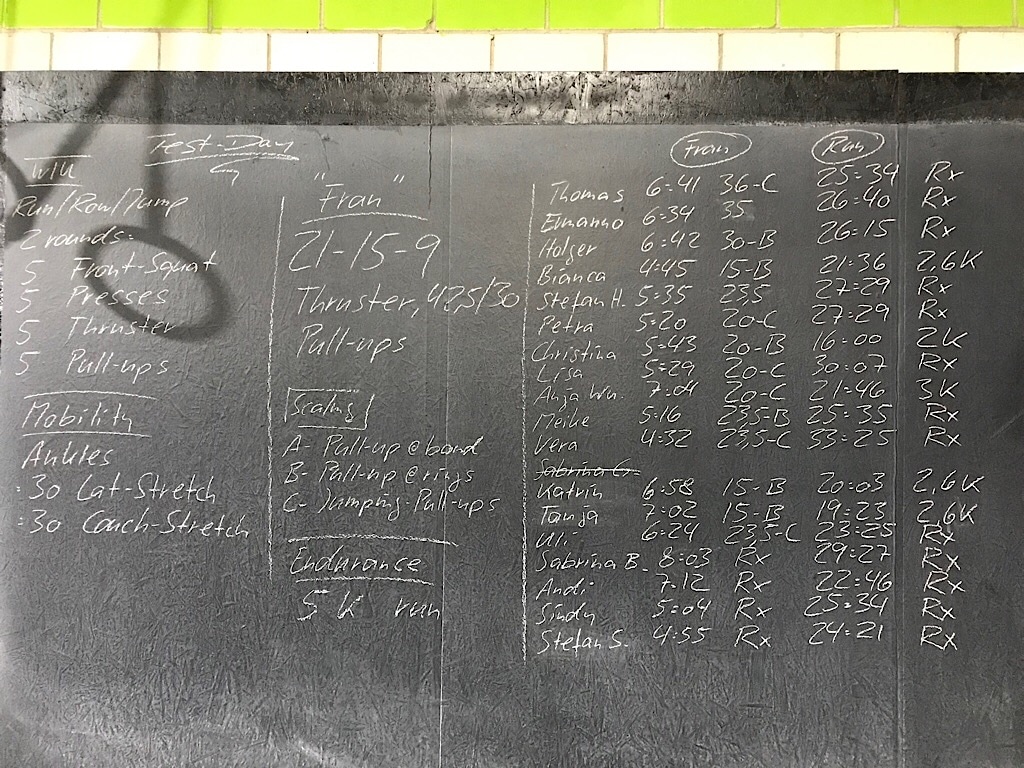 Test-Day
W/U
Run/Row/Jump
2 rounds:
5 Front-Squat
5 Presses
5 Thruster
5 Pull-ups
Mobility
Ankles
:30 Lat-Stretch
:30 Couch-Stretch
"Fran"
21-15-9
Thruster, 42,5/30
Pull-ups
Scaling
A- Pull-up @ band
B- Pull-up @ rings
C- Jumping-Pull-ups
Endurance
5 k run
Fran Run
Thomas 6:41 36-C 25:34 Rx
Ermanno 6:34 35 26:40 Rx
Holger 6:42 30-B 26:15 Rx
Bianca 4:45 15-B 21:36 2,6K
Stefan H. 5:35 23,5 27:29 Rx
Petra 5:20 20-C 27:29 Rx
Christina 5:43 20-B 16:00 2K
Lisa 5:29 20-C 30:07 Rx
Anja Wu. 7:01 20-C 21:46 3K
Meike 5:16 23,5-B 25:35 Rx
Vera 4:32 23,5-C 33:25 Rx
Sabrina G.
Katrin 6:58 15-B 20:03 2,6K
Tanja 7:02 15-B 19:23 2,6K
Uli 6:24 23,5-C 23:25 Rx
Sabrina B. 8:03 Rx 29:27 Rx
Andi 7:12 Rx 22:46 Rx
Sindy 5:04 Rx 25:34 Rx
Stefan S. 4:55 Rx 24:21 Rx